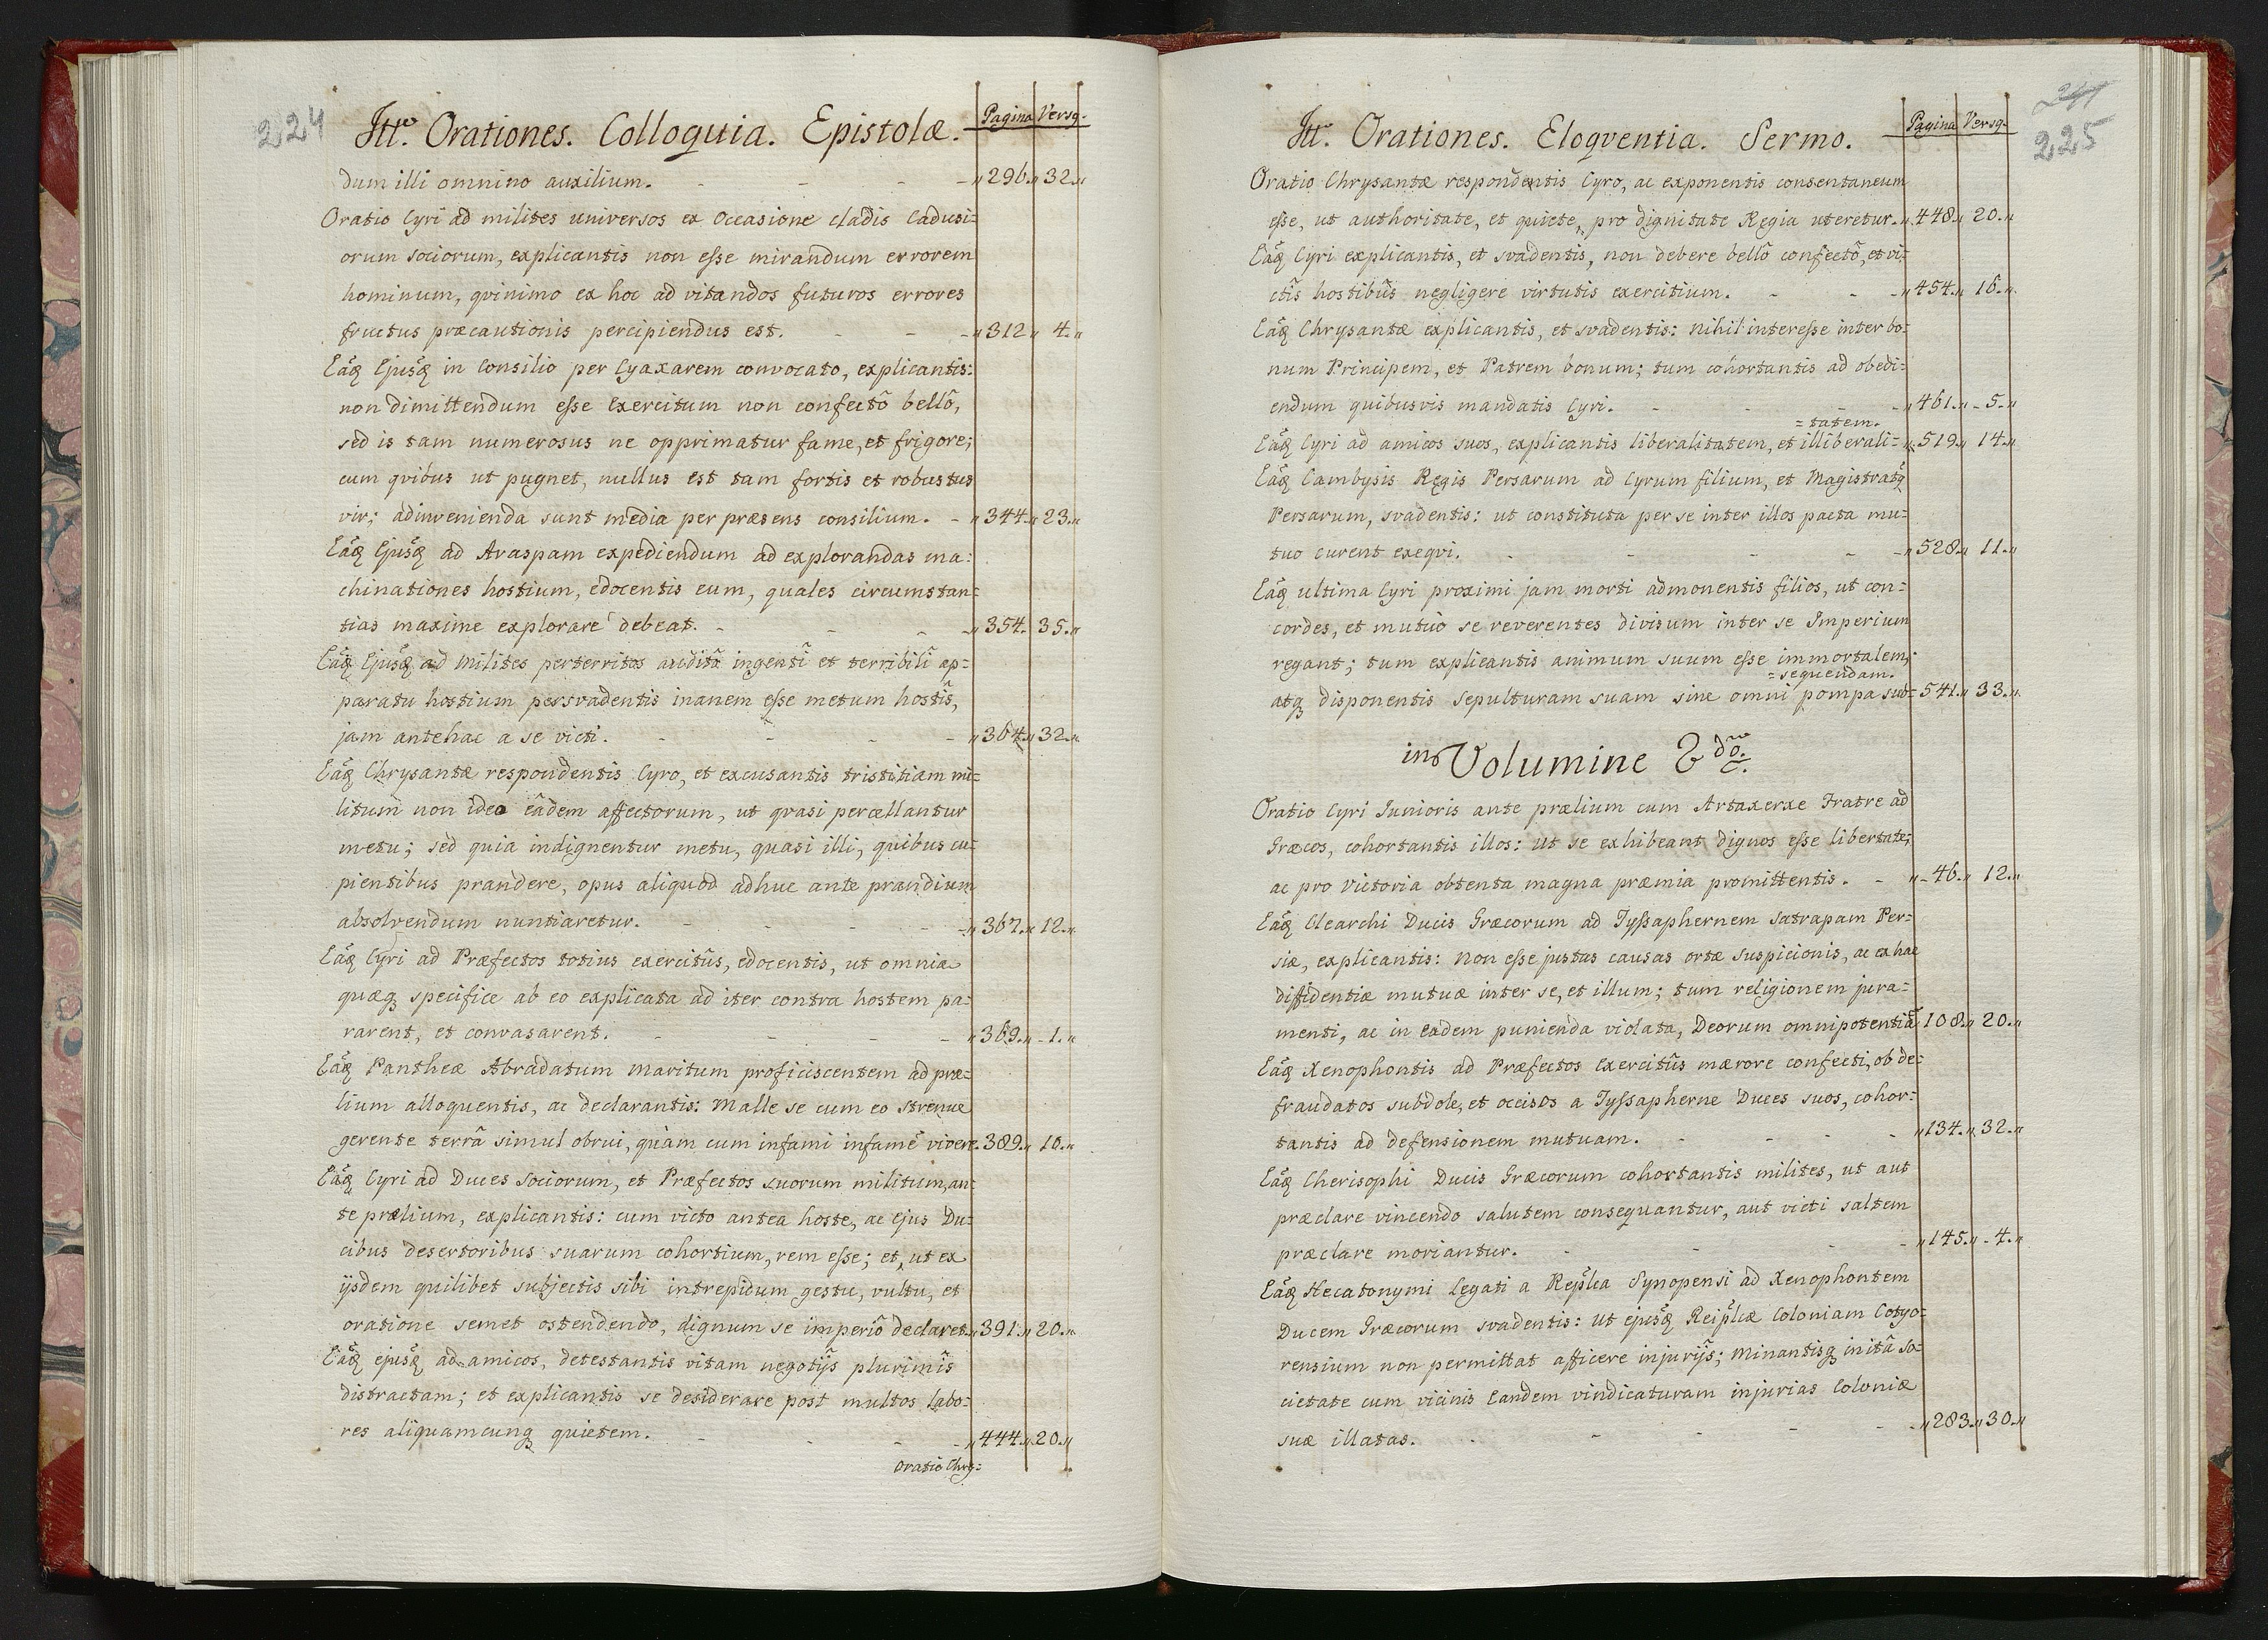 224
Itt. Orationes. Colloquia. Epistolæ.
Pagina Versq.
dum illi omnino auxilium. - - - „296.„ 32.„
Oratio Cyri ad milites universos ex occasione cladis Cadusi=
orum sociorum, explicantis non esse mirandum errorem
hominum, qvinimo ex hoc ad vitandos futuros errores
fructus præcautionis percipiendus est. - - - „312„ 4.„
Eáq Ejusq in Consilio per Cyaxarem convocato, explicantis:
non dimittendum esse Exercitum non confectô bellô,
sed is tam numerosus ne opprimatur fame, et frigore;
cum qvibus ut pugnet, nullus est tam fortis et robustus
vir; adinvenienda sunt media per præsens consilium. - „344.„ 23.„
Eáq Ejusq ad Araspam expediendum ad explorandas ma=
chinationes hostium, edocentis eum, quales circumstan=
tias maxime explorare debeat. - - - „354. 35.„
Eáq Ejusq ad Milites perterritos auditâ ingenti et terribili ap=
paratu hostium persvadentis inanem esse metum hostis,
jam antehac a se victi. - - - - „364.„ 32.„
Eáq Chrysantæ respondentis Cyro, et excusantis tristitiam mi=
litum non ideo eâdem affectorum, ut qvasi percellantur
metu; sed quia indignentur metu, quasi illi, quibus cu=
pientibus prandere, opus aliquod adhuc ante prandium
absolvendum nuntiaretur. - - - - „367.„ 12.„
Eáq Cyri ad Præfectos totius exercitûs, edocentis, ut omnia
quæq specifice ab eo explicata ad iter contra hostem pa=
rarent, et convasarent. - - - - „369.„ - 1.„
Eáq Pantheæ Abradatum maritum proficiscentem ad præ=
lium alloquentis, ac declarantis: Malle se cum eo strenue
gerente terrâ simul obrui, quàm cum infami infame vivere. 389.„ 10.„
Eáq Cyri ad Duces Sociorum, et Præfectos suorum militum, an=
te prælium, explicantis: cum victo antea hoste, ac ejus Du=
cibus desertoribus suarum cohortium, rem esse; et, ut ex
ijsdem quilibet subjectis sibi intrepidum gestu, vultu, et
oratione semet ostendendo, dignum se imperiô declaret. „391.„ 20.„
Eáq ejusq ad amicos, detestantis vitam negotijs plurimis
distractam; et explicantis se desiderare post multos labo=
res aliquamcunq quietem. - - - - „444.„ 20.„
Oratio Chry=
241
225
Itt. Orationes. Eloqventia. Sermo.
Pagina Versq.
Oratio Chrysantæ respondentis Cyro, ac exponentis consentaneum
esse, ut authoritate, et quiete, pro dignitate Regia uteretur. „448.„ 20.„
Eáq Cyri explicantis, et svadentis, non debere bellô confectô, et vi=
ctis hostibus negligere virtutis exercitium. - - - „454.„ 16.„
Eáq Chrysantæ explicantis, et svadentis: Nihil interesse inter bo=
num Principem, et Patrem bonum; tum cohortantis ad obedi=
endum quibusvis mandatis Cyri. - - - „461.„ - 5.„
=tatem.
Eáq Cyri ad amicos suos, explicantis liberalitatem, et illiberali= „519.„ 14.„
Eáq Cambysis Regis Persarum ad Cyrum filium, et Magistratq
Persarum, svadentis: ut constituta per se inter illos pacta mu=
tuo curent exeqvi. - - - - „528.„ 11.„
Eáq ultima Cyri proximi jam morti admonentis filios, ut con=
cordes, et mutuò se reverentes divisum inter se Imperium
regant; tum explicantis animum suum esse immortalem,
=sequendam.
atq disponentis sepulturam suam sine omni pompa sub= 541.„ 33.„
in Volumine 2do.
Oratio Cyri Junioris ante prælium cum Artaxerxe Fratre ad
Græcos, cohortantis illos: ut se exhibeant dignos esse libertate;
ac pro Victoria obtenta magna præmia promittentis. - „- 46.„ 12.„
Eáq Clearchi Ducis Græcorum ad Tyssaphernem Satrapam Per=
siæ, explicantis: Non esse justas causas ortæ suspicionis, ac ex hac
diffidentiæ mutuæ inter se, et illum; tum religionem jura=
menti, ac in eadem punienda violata, Deorum omnipotentiã 108.„ 20.„
Eáq Xenophontis ad Præfectos Exercitûs mærore confecti, ob de=
fraudatos subdole, et occisos a Tyssapherne Duces suos, cohor=
tantis ad defensionem mutuam. - - - - „134.„ 32.„
Eáq Cherisophi Ducis Græcorum cohortantis milites, ut aut
præclare vincendo salutem consequantur, aut victi saltem
præclare moriantur. - - - - „145.„ - 4.„
Eáq Hecatonymi Legati a Repĺca Synopensi ad Xenophontem
Ducem Græcorum svadentis: ut ejusq Reipĺcæ Coloniam Cotyo=
rensium non permittat afficere injurijs; minantisq initâ so=
cietate cum vicinis Eandem vindicaturam injurias Coloniæ
suæ illatas. - - - - „283.„ 30.„